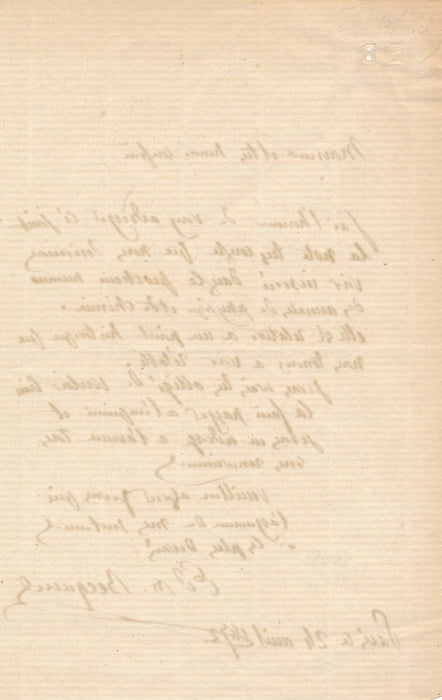 Monsieur et très honoré confrère
J'ai l'honneur de vous adresser ci-joint
la note très courte que nous désirerions
voir insérée dans le prochain numéro
des annales de physique et de chimie.
elle est relative à un point historique que
nous tenons à voir rétabli.
je vous serai très obligé de vouloir bien
la faire passer à l'imprimerie et
je vous en adresse à l'avance tous
mes remerciements
veuillez agréer je vous prie
l'expression de mes sentiments
les plus dévoués
Ed. Becquerel
Paris ce 24 avril 1872.